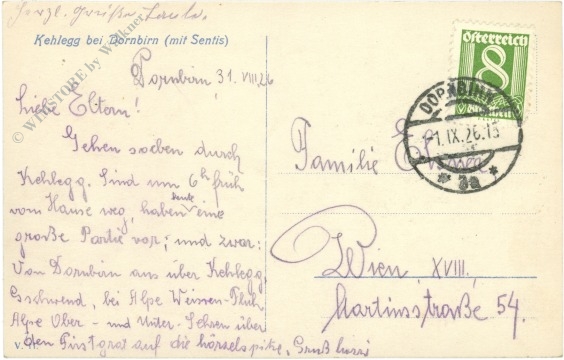 Herzl. Grüße Paula.
Kehlegg bei Dornbirn (mit Sentis)
© WEBSTORE by Walkner
Dornbirn 31. VIII. 26
Liebe Eltern!
Gehen soeben durch
Kehlegg. Sind um 6h früh
vom Hause weg, haben heute eine
große Partie vor; und zwar:
Von Dornbirn aus über Kehlegg,
bei Alpe Weissen-Fluh,
Alpe Ober- und Unter- Sehren über
den Firstgrat auf die
V. H.
Österreich
8
DORNBIRN
1. IX. 26. 13
* 3a *
Familie
Wien, XVIII.
Martinsstraße 54.